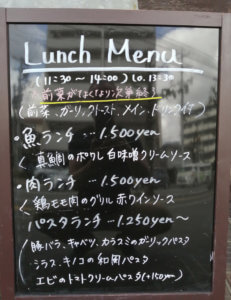 Lunch Menu
(11:30 ～ 14:00) l.o. 13:30
前菜がなくなり次第終了
(前菜、ガーリックトースト、メイン、ドリンク付)
・魚ランチ … 1.500yen
< 真鯛のポワレ 白味噌クリームソース
・肉ランチ … 1.500yen
< 鶏モモ肉のグリル 赤ワインソース
パスタランチ … 1.250yen～
豚バラ、キャベツ、カラスミのガーリックパスタ
シラス、キノコの和風パスタ
エビのトマトクリームパスタ(+150yen)